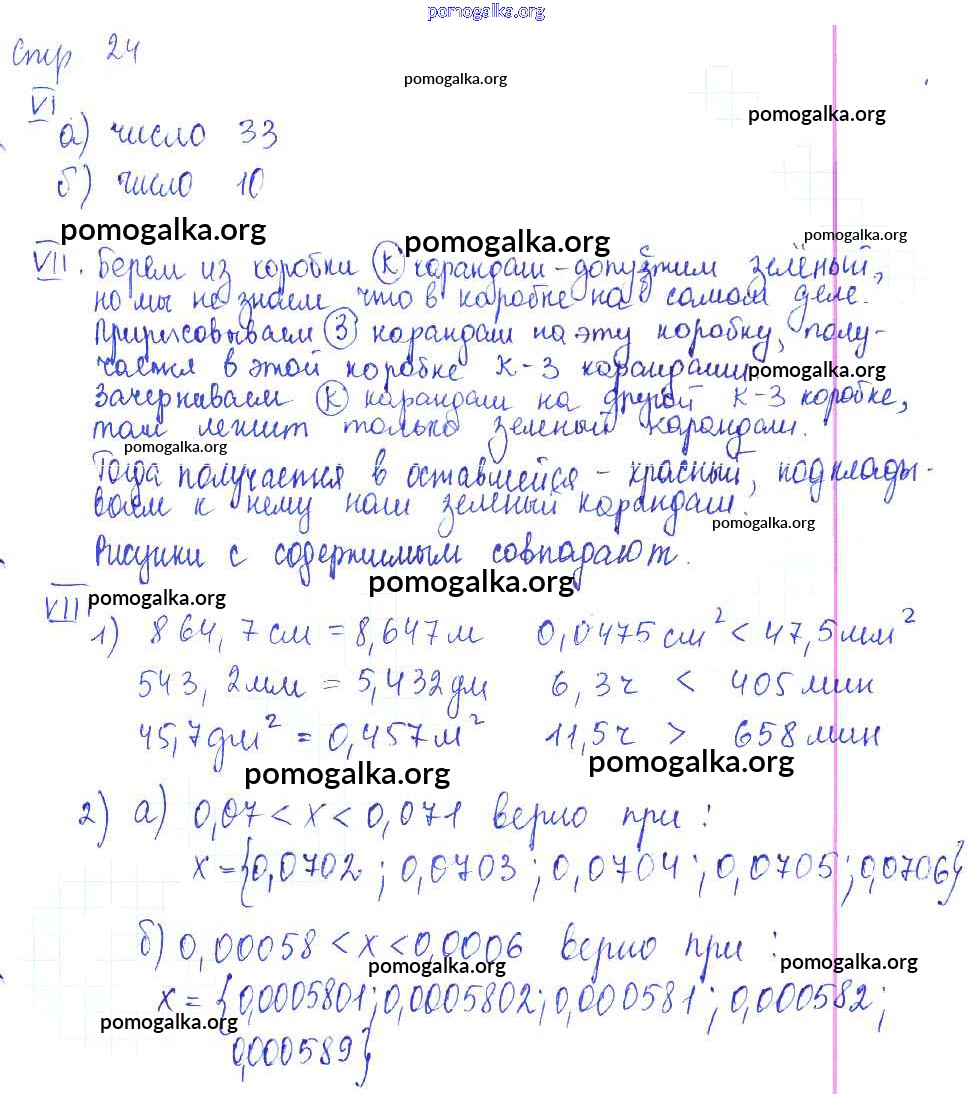 pomogalka.org
Стр 24
pomogalka.org
VI
pomogalka.org
а) число 33
б) число 10
pomogalka.org pomogalka.org pomogalka.org
VII. Берем из коробки К карандаш - допустим зелёный,
но мы не знаем что в коробке на самом деле.
Пририсовываем З карандаш на эту коробку, полу-
чается в этой коробке К-З карандаши.
pomogalka.org
Зачеркиваем К карандаш на другой К-З коробке,
там лежит только зеленый карандаш.
pomogalka.org
Тогда получается в оставшейся - красный, подклады-
ваем к нему наш зеленый карандаш.
pomogalka.org
Рисунки с содержимым совпадают.
pomogalka.org
VIII pomogalka.org
1) 864,7см = 8,647м 0,0475см² < 47,5мм²
543,2мм = 5,432дм 6,3ч < 405мин
45,7дм² = 0,457м² 11,5ч > 658мин
pomogalka.org pomogalka.org
2) а) 0,07 < х < 0,071 верно при:
х = {0,0702; 0,0703; 0,0704; 0,0705; 0,0706}
б) 0,00058 < х < 0,0006 верно при:
pomogalka.org pomogalka.org
х = {0,0005801; 0,0005802; 0,000581; 0,000582;
pomogalka.org
0,000589}